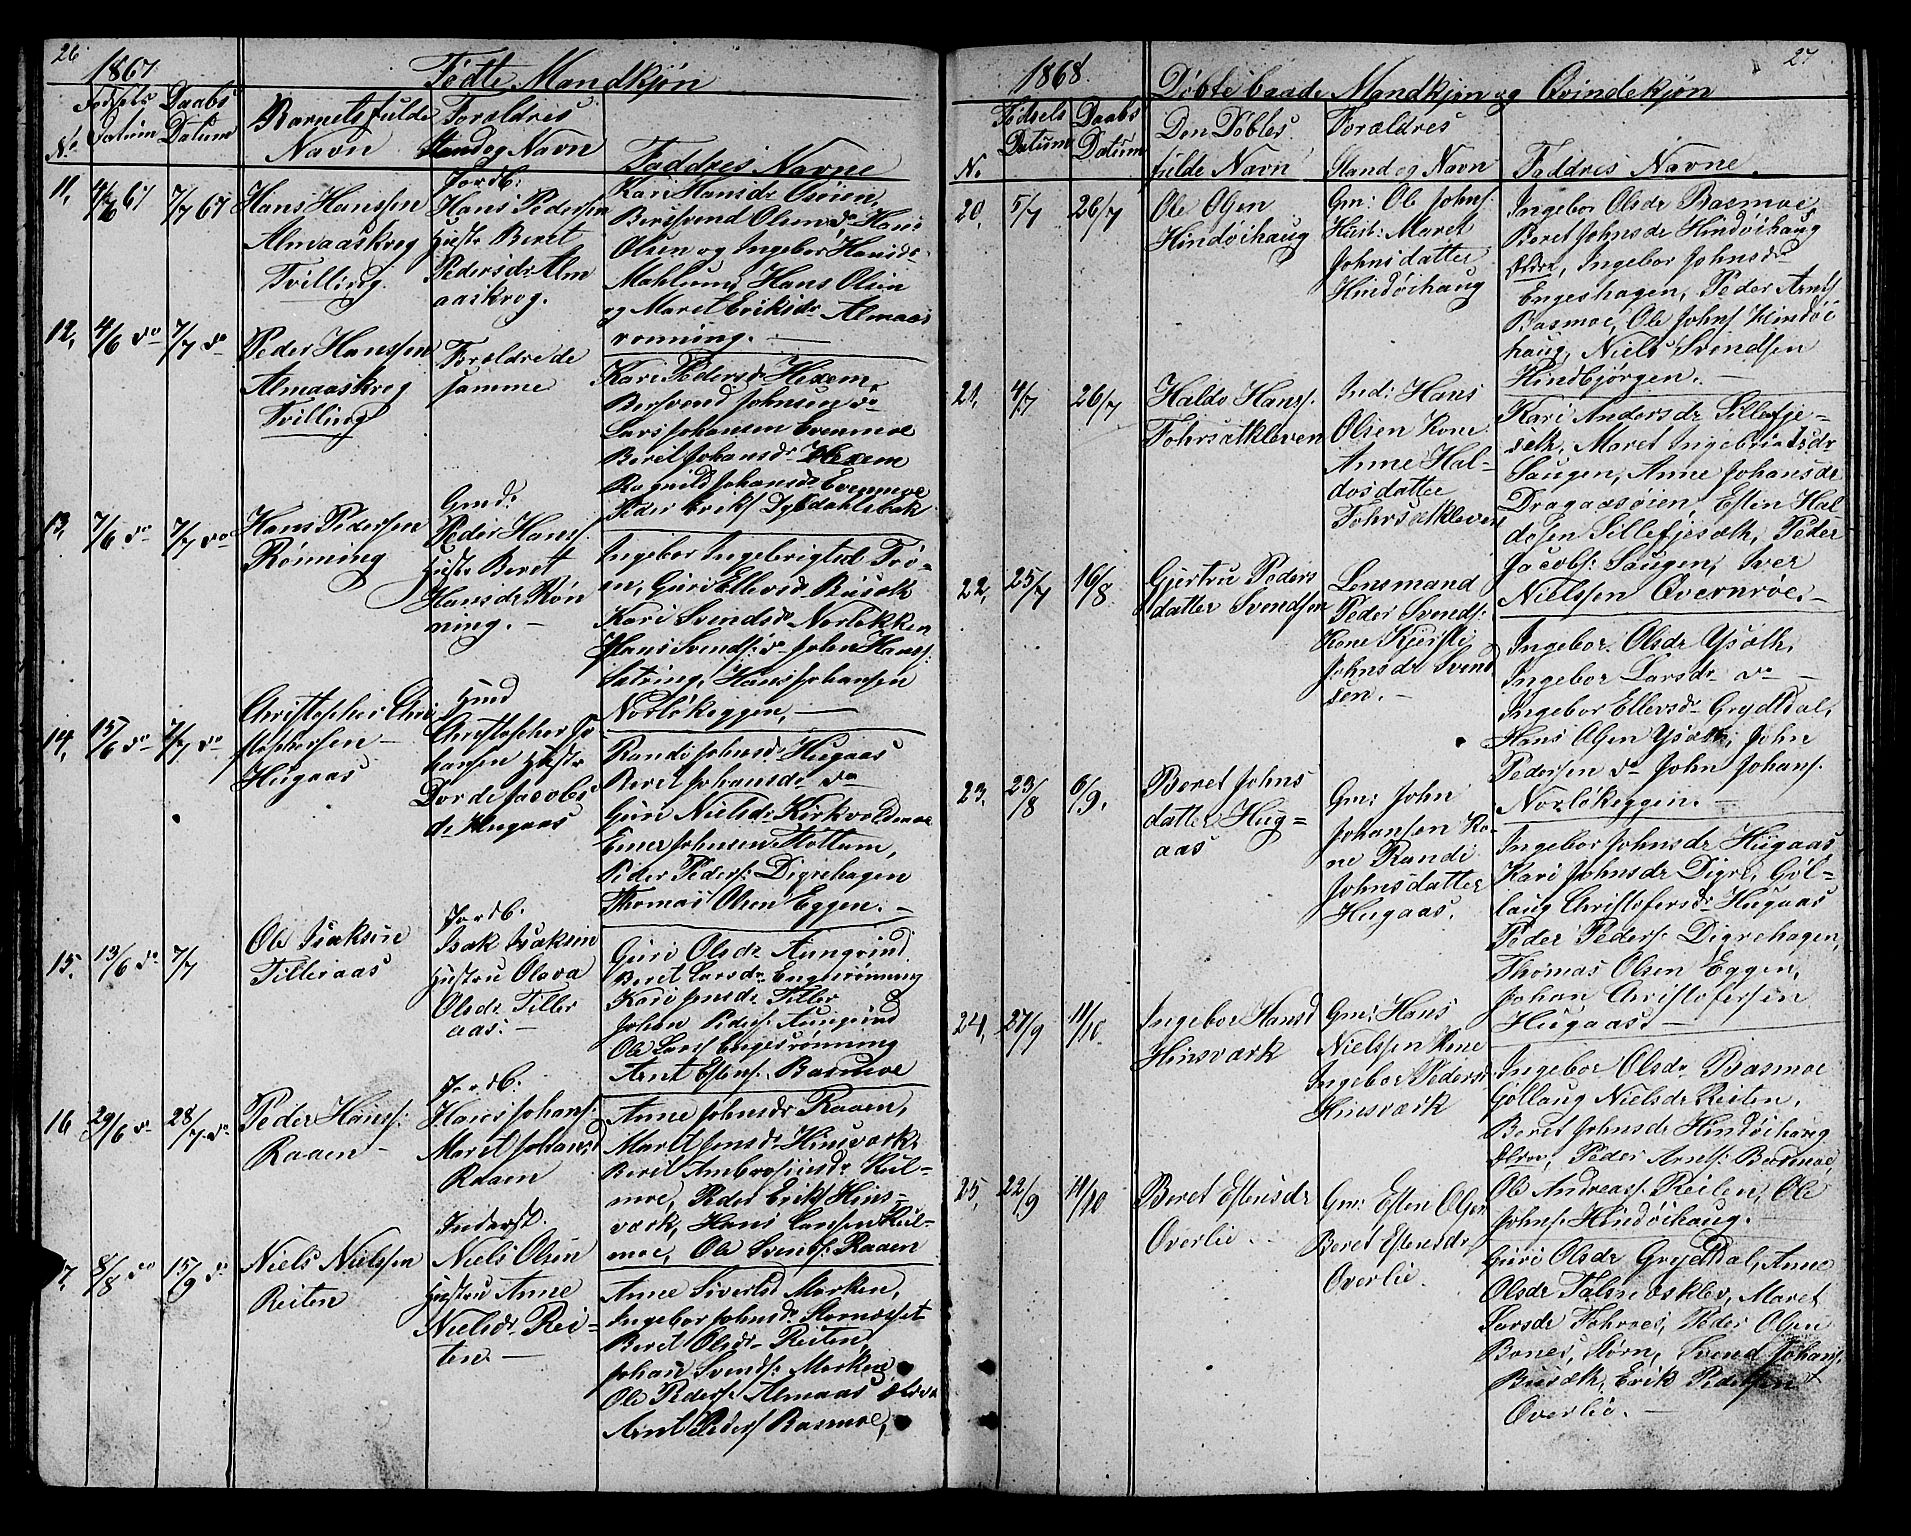 26
1867
Fødte Mandkjøn
No
Fødsels Datum
Daabs Datum
Barnets fulde Navn
Forældres Stand og Navn
Faddres Navne
11, 4/6 67 7/7 67
Hans Hanssen
Almaaskrog
Tvilling
Jordb:
Hans Pedersen
Hustr Beret
Pedersdr Alm
aaskrog.
Kari Hansdr Osøien,
Bersvend Olsen do, Hans
Olsen og Ingebor Hansdr
Mahlum, Hans Olsen
og Maret Eriksdr Almaas
rønning. —
12, 4/6 do 7/7 do
Peder Hanssen
Almaaskrog
Tvilling
Forældre de
samme
Kari Pedersdr Hexem,
Bersvend Johnsen do
Lars Johansen Evenmoe
Beret Johansdr Hexem
Ragnild Johansdr Evenmoe
Peder Eriks Dybdahlsbak
13, 7/6 do 7/7 do
Hans Pedersen
Rønning
Gmd:
Peder Hans:
Hustr Beret
Hansdr Røn
ning. —
Ingebor Ingebrigtsd Trø-
en, Guri Ellevsd Busæth
Kari Svendsdr Norløkken
Hans Svends: do John Hans:
Sætring, Hans Johansen
Norløkeggen, —
14, 15/6 do 7/7 do
Christopher Chri
stophersen —
Hugaas
Gmd
Christopher Jo
hansen Hustr
Dorde Jacobs
dr Hugaas
Randi Johnsdr Hugaas
Beret Johansdr do
Guri Nielsdr Kirkvoldmoe
Einer Johnsen Flottum,
Peder Peders: Digrehagen
Thomas Olsen Eggen. —
15, 13/6 do 7/7
Ole Isaksen
Tilleraas
Jordb.
Isak Isaksen
Hustru Olava
Olsdr Tiller
aas. —
Guri Olsdr Aungrind
Beret Larsdr Engesrønning
Kari Jensdr Tiller
Johan Peders: Aungrind
Ole Lars Engesrønning
Arnt Estens: Basmoe
16 29/6 do 28/7 do
Peder Hans:
Raaen —
Jordb:
Hans Johans:
Maret Johansd
Raaen
Anne Johnsdr Raaen,
Maret Jensdr Hinsværk
Beret Ambrosiusdr Kul-
moe, Peder Eriks Hins-
værk, Hans Larsen Kul-
moe, Ole Svends: Raaen
7, 8/8 do 15/9 do
Niels Nielssen
Reiten
Inderst.
Niels Olsen
Hustru Anne
Nielsdr Rei-
ten —
Anne Sivertsd Morken,
Ingebor Johnsdr Stornæsset
Beret Olsdr Reiten,
Johan Svends: Morken
Ole Peders: Almaas ældre
Arnt Peders Basmoe,
27
1868.
Døbte baade Mandkjøn og Qvindekjøn
No
Fødsels Datum
Daabs Datum
Den Døbtes fulde Navn
Forældres Stand og Navn
Faddres Navne.
20. 5/7 26/7
Ole Olsen
Hindøihaug
Gm: Ole Johns:
Hust: Maret
Johnsdatter
Hindøihaug
Ingebor Olsdr Basmoe
Beret Johnsdr Hindøihaug
ældre, Ingebor Johnsdr
Engeshagen, Peder Arnts
Basmoe, Ole Johns Hindøi
haug, Niels Svendsen
Hindbjørgen. —
21, 4/7 26/7
Haldo Hans:
Fohrsætkleven
Ind: Hans
Olsen Kone
Anne Hal-
dosdatter
Fohrsætkleven
Kari Andersdr Sillefje-
seth, Maret Ingebrigtsdr
Saugen, Anne Johansdr
Dragaasøien, Esten Hal
dosen Sillefjesæth, Peder
Jacobs: Saugen, Iver
Nielssen Øvernrøe. —
22, 25/7 16/8
Gjertru Peders
datter Svendsen
Lensmand
Peder Svends:
Kone Kjersti
Johnsdr Svend
sen. —
Ingebor Olsdr Ysæth,
Ingebor Larsdr do —
Ingebor Ellevsdr Grytdal,
Hans Olsen Ysæth, John
Pedersen do John Johans:
Norløkeggen. —
23, 23/8 6/9.
Beret Johns
datter Hug=
aas
Gm: John
Johansen Ko-
ne Randi
Johnsdatter
Hugaas.
Ingebor Johnsdr Hugaas
Kari Johnsdr Digre, Gol-
laug Christofersdr Hugaas
Peder Peders: Digrehagen,
Thomas Olsen Eggen,
Johan Christofersen
Hugaas. —
24, 27/9 11/10.
Ingebor Hansd
Hinsværk
Gm: Hans
Nielssen Kone
Ingebor Pedersd
Hinsværk
Ingebor Olsdr Basmoe
Gollaug Nielsdr Reiten,
Beret Johnsdr Hindøihaug
ældre, Peder Arnts: Basmoe,
Ole Andreas: Reiten, Ole
Johns: Hindøihaug. —
25, 22/9 11/10
Beret Estensdr
Overlie.
Gm: Esten Olsen
Beret Estensdr
Overlie.
Guri Olsdr Grytdal, Anne
Olsdr Talsnesklev, Maret
Larsdr Fohrøes, Peder Olsen
Bones, Størn, Svend Johans:
Busæth, Erik Pedersen
Overlie. —